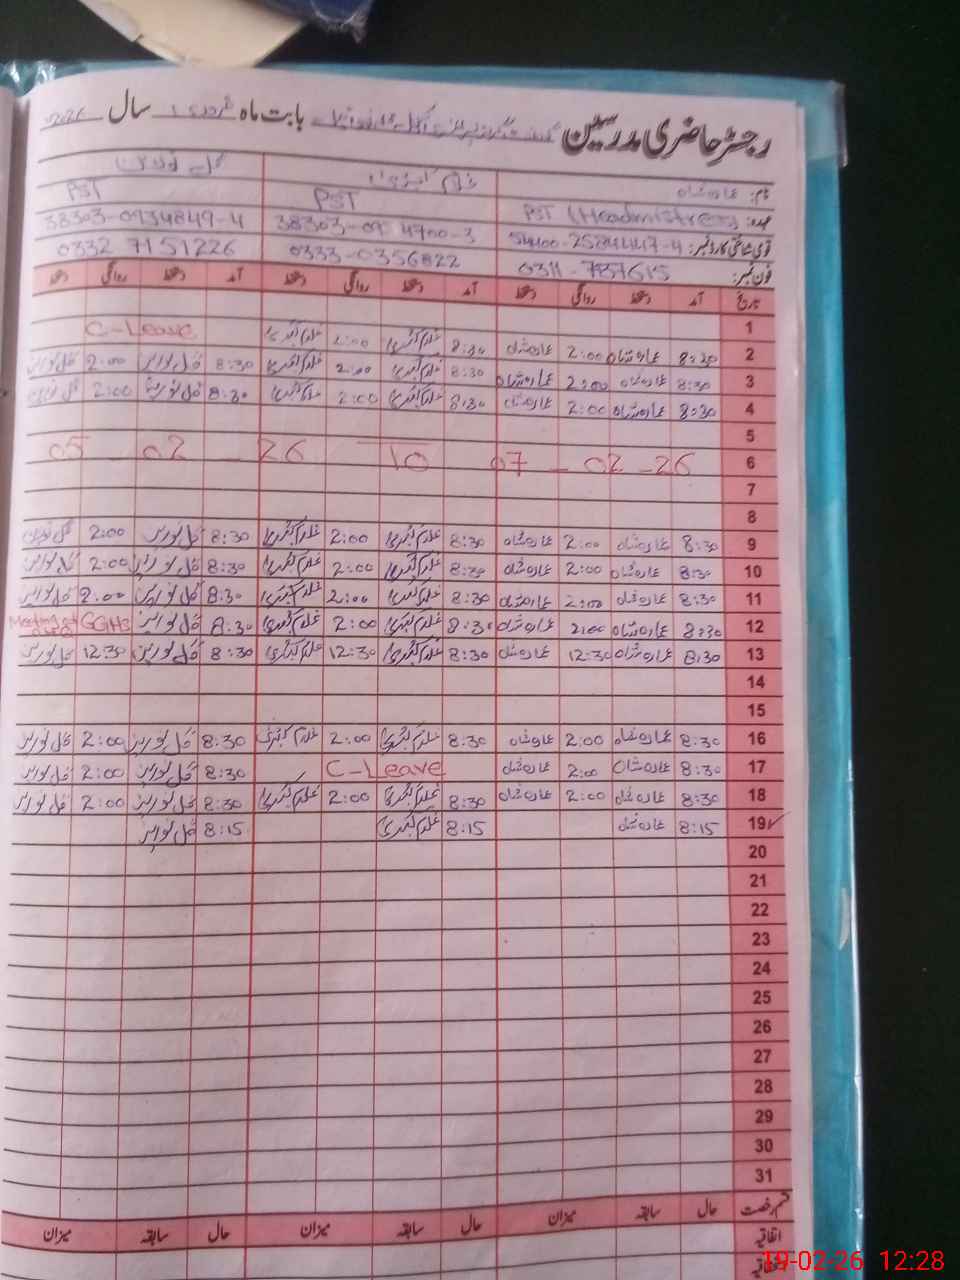 رجسٹر حاضری مدرسین بابت ماہ فروری سال 2026
نام: عمارہ شاہ
عہدہ: PST (Headmistress) PST PST
قومی شناختی کارڈ نمبر: 38303-0934849-4
فون نمبر: 0333-0356822 0332 7151226
تاریخ آمد دستخط روانگی دستخط آمد دستخط روانگی دستخط آمد دستخط روانگی دستخط
1
2 8:30 عمارہ شاہ 2:00 عمارہ شاہ 8:30 غلام کبریٰ 2:00 غلام کبریٰ C-Leave
3 8:30 عمارہ شاہ 2:00 عمارہ شاہ 8:30 غلام کبریٰ 2:00 غلام کبریٰ 8:30 گل نورین 2:00 گل نورین
4 8:30 عمارہ شاہ 2:00 عمارہ شاہ 8:30 غلام کبریٰ 2:00 غلام کبریٰ 8:30 گل نورین 2:00 گل نورین
5
6 05 - 02 - 26 TO 07 - 02 - 26
7
8
9 8:30 عمارہ شاہ 2:00 عمارہ شاہ 8:30 غلام کبریٰ 2:00 غلام کبریٰ 8:30 گل نورین 2:00 گل نورین
10 8:30 عمارہ شاہ 2:00 عمارہ شاہ 8:30 غلام کبریٰ 2:00 غلام کبریٰ 8:30 گل نورین 2:00 گل نورین
11 8:30 عمارہ شاہ 2:00 عمارہ شاہ 8:30 غلام کبریٰ 2:00 غلام کبریٰ 8:30 گل نورین 2:00 گل نورین
12 8:30 عمارہ شاہ 2:00 عمارہ شاہ 8:30 غلام کبریٰ 2:00 غلام کبریٰ 8:30 گل نورین GGHS Meeting
13 8:30 عمارہ شاہ 12:30 عمارہ شاہ 8:30 غلام کبریٰ 12:30 غلام کبریٰ 8:30 گل نورین 12:30 گل نورین
14
15
16 8:30 عمارہ شاہ 2:00 عمارہ شاہ 8:30 غلام کبریٰ 2:00 غلام کبریٰ 8:30 گل نورین 2:00 گل نورین
17 8:30 عمارہ شاہ 2:00 عمارہ شاہ C-Leave 8:30 گل نورین 2:00 گل نورین
18 8:30 عمارہ شاہ 2:00 عمارہ شاہ 8:30 غلام کبریٰ 2:00 غلام کبریٰ 8:30 گل نورین 2:00 گل نورین
19 8:15 عمارہ شاہ 8:15 غلام کبریٰ 8:15 گل نورین
20
21
22
23
24
25
26
27
28
29
30
31
قسم رخصت حال سابقہ میزان حال سابقہ میزان حال سابقہ میزان
اتفاقیہ
19-02-26 12:28